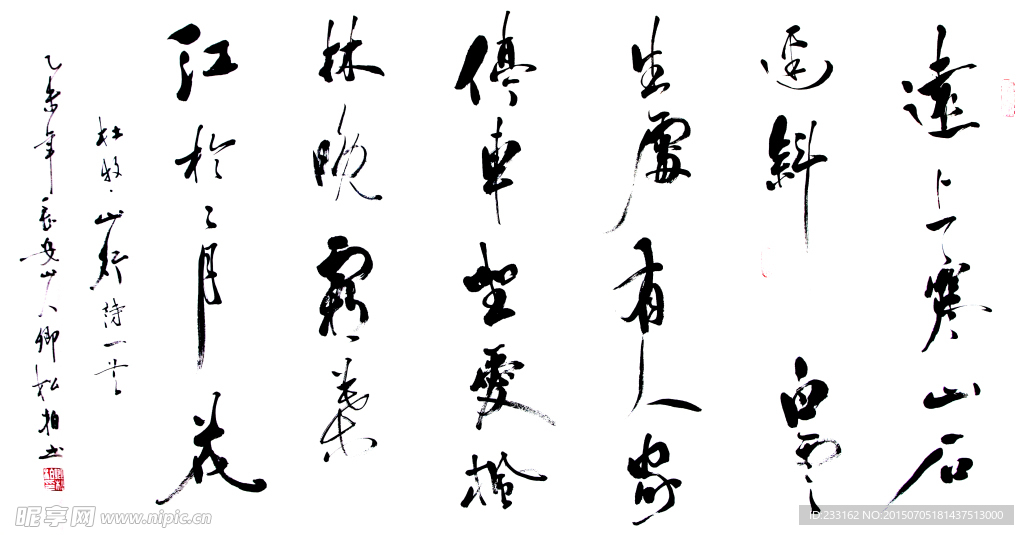 遠上寒山石
迳斜白雲
生處有人家
停車坐愛楓
林晚霜葉
紅於二月花
杜牧山行詩一首
乙未年長安山人卿松柏书
昵享网 www.nipic.cn
ID:233162 NO:20150705181437513000